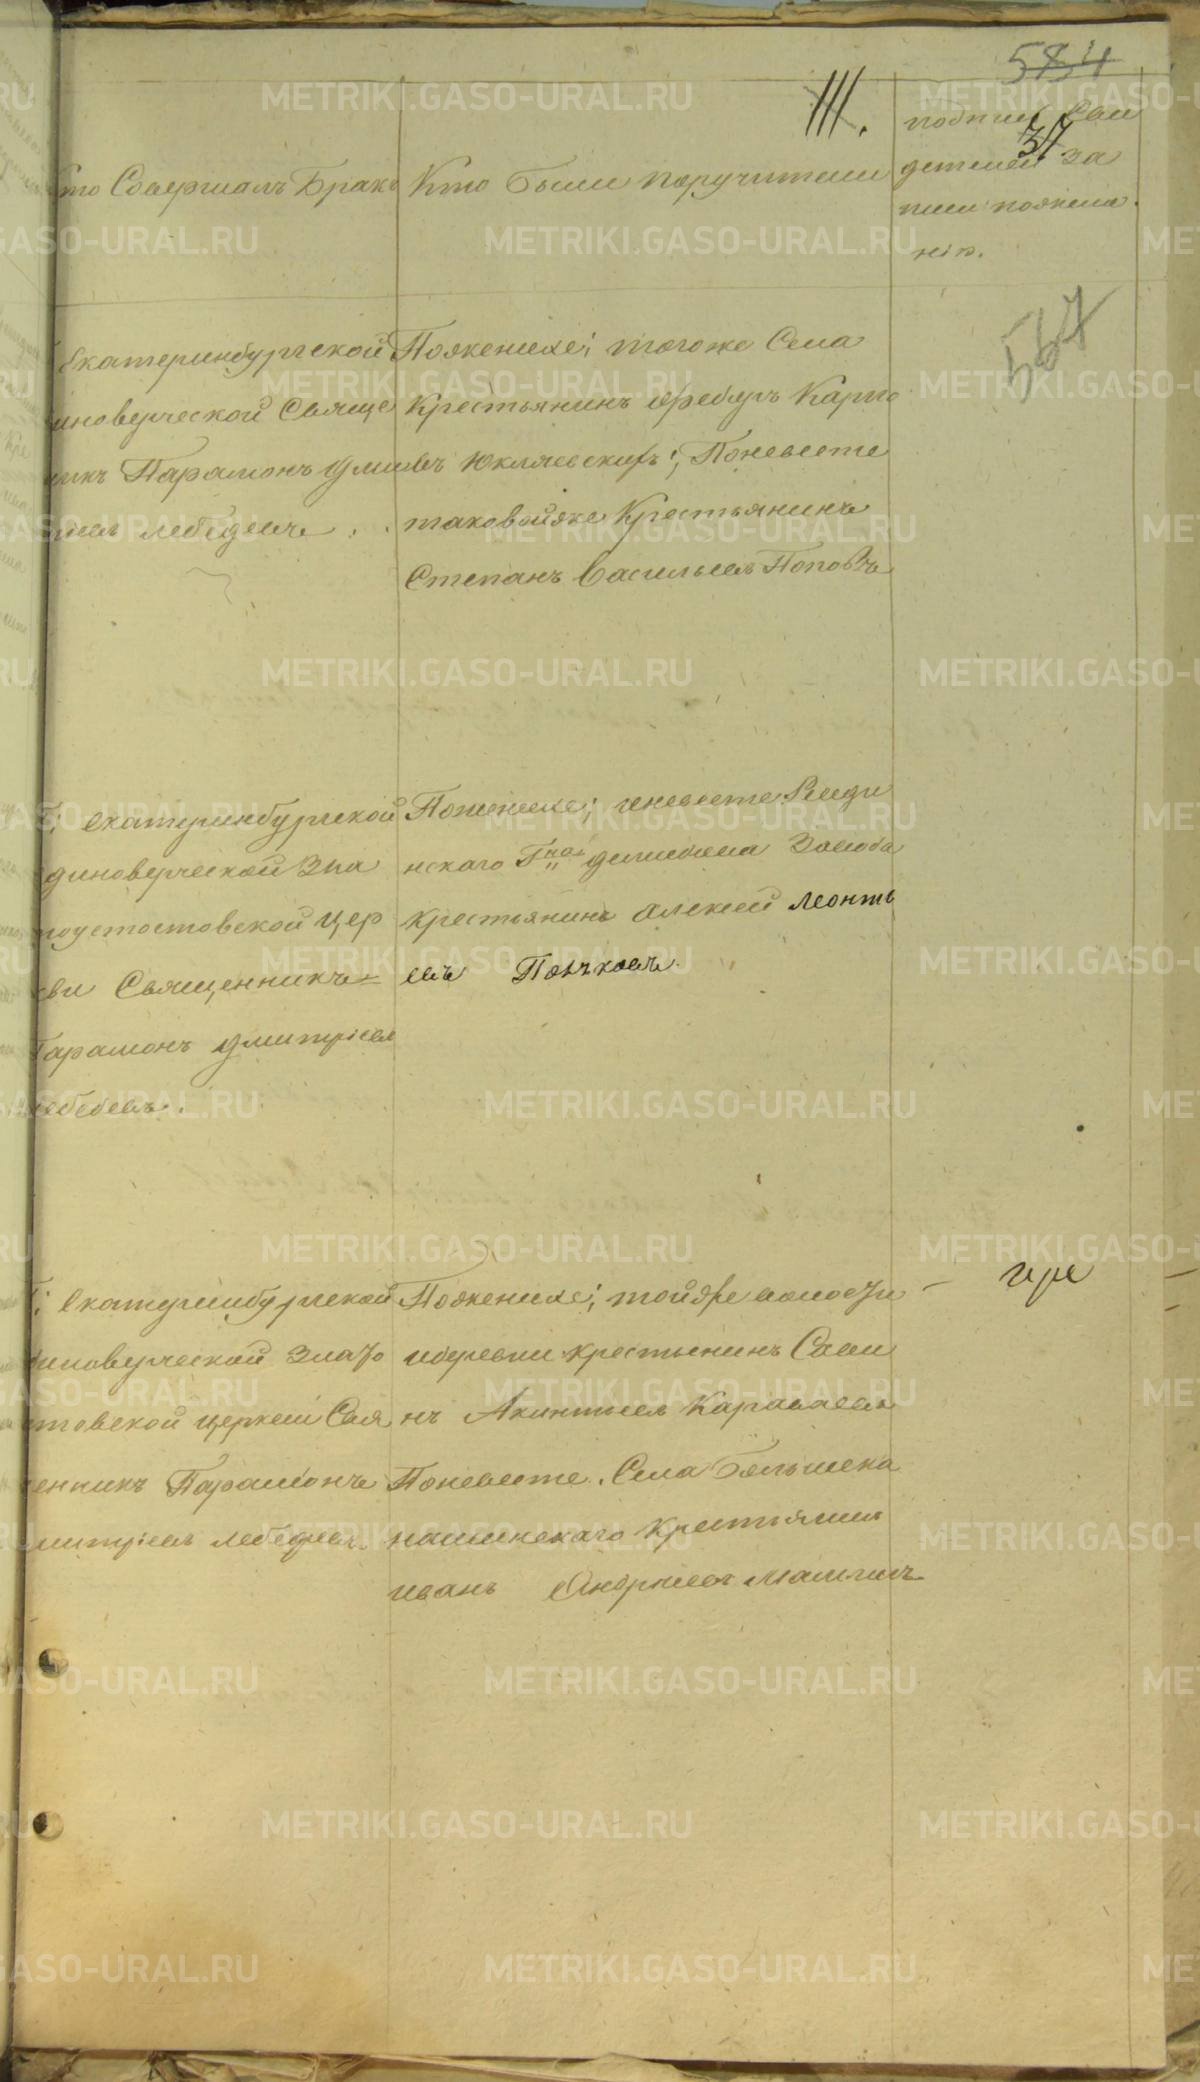 584
III.
37
Кто Совершалъ Бракъ
Кто были поручители
подпись Сви
детелей за
писи пожела
нію.
567
Екатеринбургской
диноверческой Свяще
никъ Парамонъ Дми
тріевъ Лебедевъ
Поженихе; тогоже Села
Крестьянинъ Карпо
въ Юкляевскихъ; Поневесте
таковойже Крестьянинъ
Степанъ Васильевъ Поповъ
Екатеринбургской
диноверческой Зла
тоустостовской Цер
кви Священникъ
Парамонъ Дмитріевъ
Лебедевъ.
Поженихе; иневесте Ревди
нскаго Гна Демидова Завода
Крестьянинъ Алексей Леонть
евъ Пончковъ
Екатеринбургской
диноверческой Злато
стовской церкви Свя
щенникъ Парамонъ
Дмитріевъ Лебедевъ.
Поженихе; тойже волости
идеревни крестьянинъ Сави
нъ Акинтьевъ Караваевъ
Поневесте. Села Большека
нашинскаго Крестьянинъ
Иванъ Андреевъ Малыгинъ
METRIKI.GASO-URAL.RU